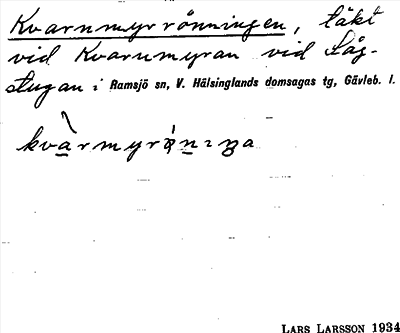 Kvarnmyrrönningen, täkt
vid Kvarnmyran vid Låg-
stugan i Ramsjö sn, V. Hälsinglands domsagas tg, Gävleb. l.
LARS LARSSON 1934